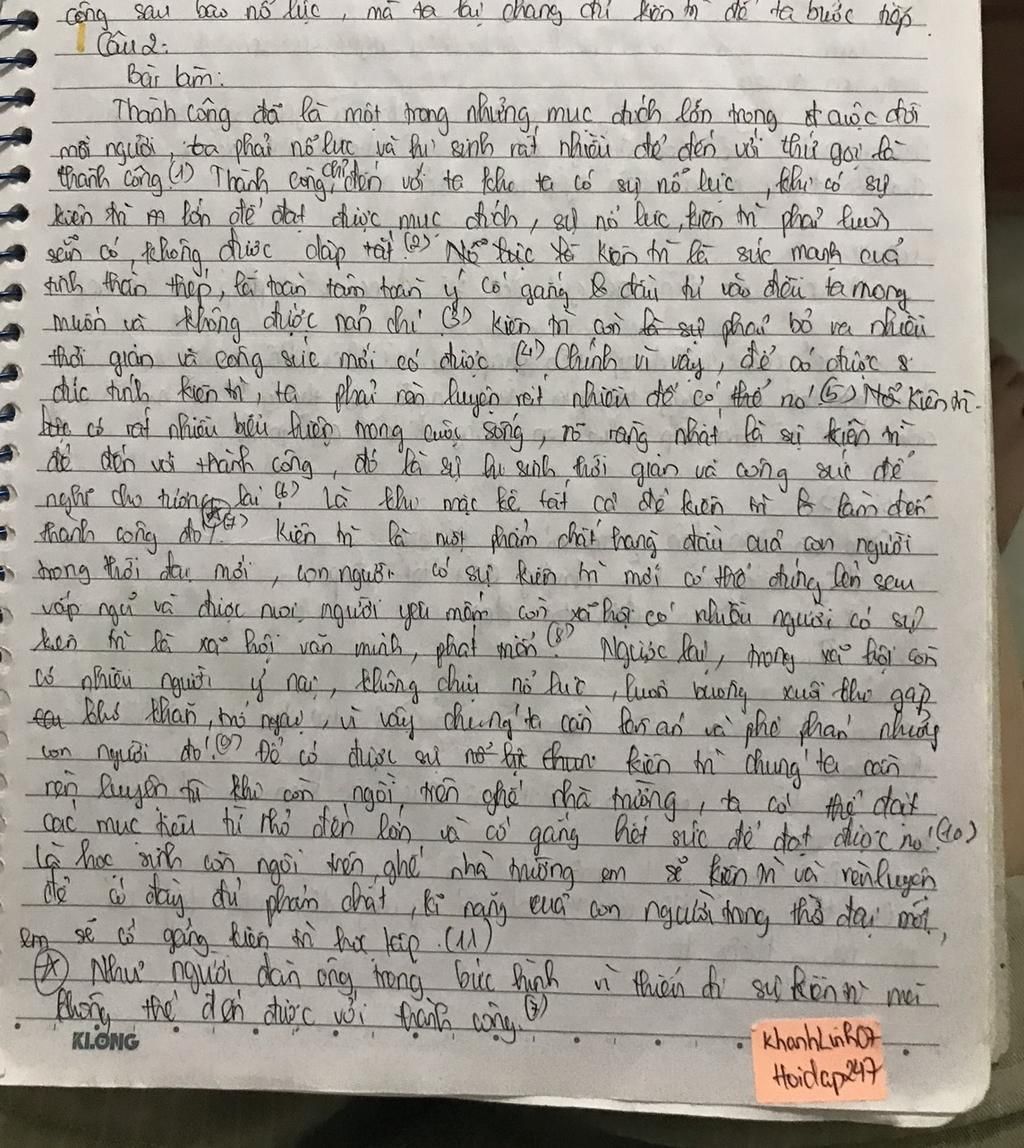 công sau bao nỗ lực, mà ta lại chẳng chỉ kiên trì để ta bước tiếp.
Câu 2:
Bài làm:
Thành công đã là một trong những mục đích lớn trong cuộc đời
mỗi người, ta phải nỗ lực và hi sinh rất nhiều để đến với thứ gọi là
thành công (1) Thành công chỉ đến với ta khi ta có sự nỗ lực, khi có sự
kiên trì lớn để đạt được mục đích, sự nỗ lực, kiên trì phải luôn
sẵn có, không được dập tắt (2) Nỗ lực kiên trì là sức mạnh của
tinh thần thép, là toàn tâm toàn ý cố gắng & đầu tư vào điều ta mong
muốn và không được nản chí (3) Kiên trì còn là sự phải bỏ ra nhiều
thời gian và công sức mới có được (4) Chính vì vậy, để có được
đức tính kiên trì, ta phải rèn luyện rất nhiều để có thể nó (5) Kiên trì
có rất nhiều biểu hiện trong cuộc sống, rõ ràng nhất là sự kiên trì
để đến với thành công, đó là sự hi sinh thời gian và công sức để
nghĩ cho tương lai (6) Là khi mặc kệ tất cả để kiên trì & làm đến
thành công đó (7) Kiên trì là một phẩm chất hàng đầu của con người
trong thời đại mới, con người có sự kiên trì mới có thể đứng lên sau
vấp ngã và được mọi người yêu mến còn xã hội có nhiều người có sự
kiên trì là xã hội văn minh, phát triển (8) Ngược lại, trong xã hội còn
có nhiều người ỷ nại, không chịu nỗ lực, luôn buông xuôi khi gặp
khó khăn, trở ngại, vì vậy chúng ta cần lên án và phê phán những
con người đó! (9) Để có được sự nỗ lực kiên trì chúng ta cần
rèn luyện từ khi còn ngồi trên ghế nhà trường, ta có thể đặt
các mục tiêu từ nhỏ đến lớn và cố gắng hết sức để đạt được nó! (10)
Là học sinh còn ngồi trên ghế nhà trường em sẽ kiên trì và rèn luyện
để có đầy đủ phẩm chất, kĩ năng của con người trong thời đại mới,
em sẽ cố gắng kiên trì học tập. (11)
Như người đàn ông trong bức hình vì thiếu đi sự kiên trì mà
không thể đến được với thành công. (7)
KLONG
KhanhLinh07
Hoidap247